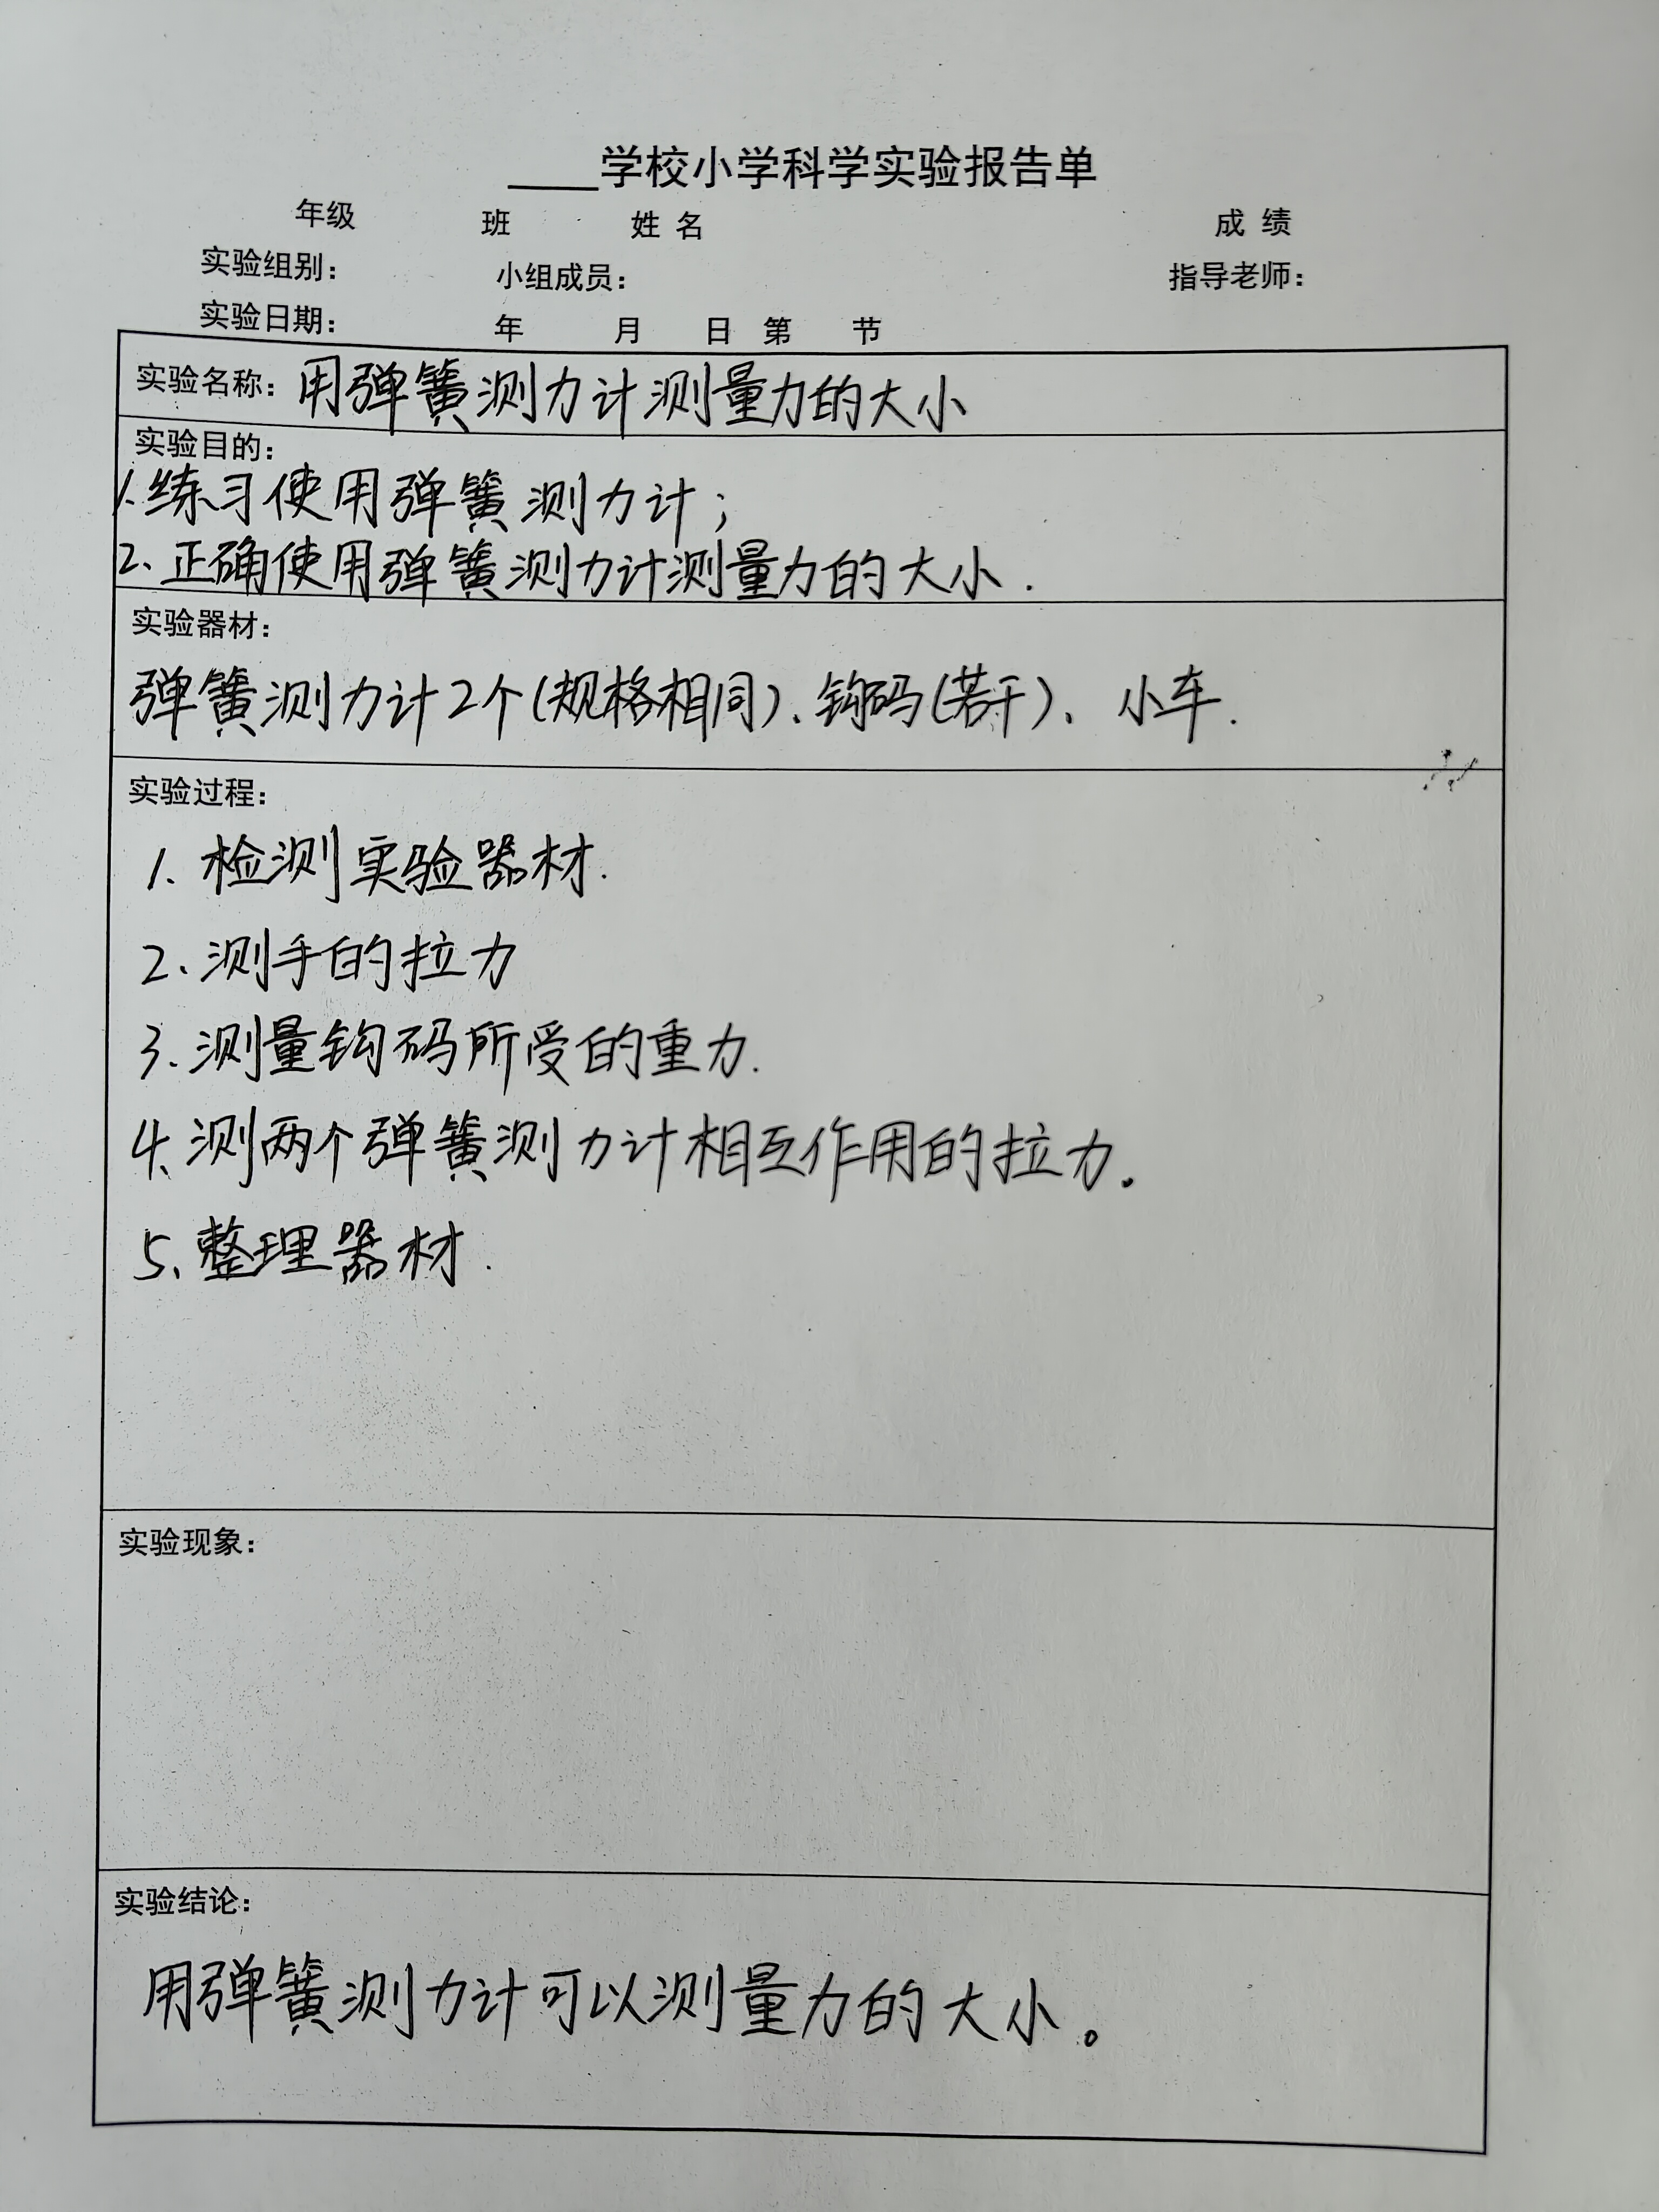 ____学校小学科学实验报告单
年级 班 姓名 成绩
实验组别： 小组成员： 指导老师：
实验日期： 年 月 日 第 节
实验名称：用弹簧测力计测量力的大小
实验目的：
1.练习使用弹簧测力计；
2、正确使用弹簧测力计测量力的大小.
实验器材：
弹簧测力计2个(规格相同)、钩码(若干)、小车.
实验过程：
1、检测实验器材.
2、测手的拉力
3、测量钩码所受的重力.
4、测两个弹簧测力计相互作用的拉力.
5、整理器材.
实验现象：
实验结论：
用弹簧测力计可以测量力的大小。